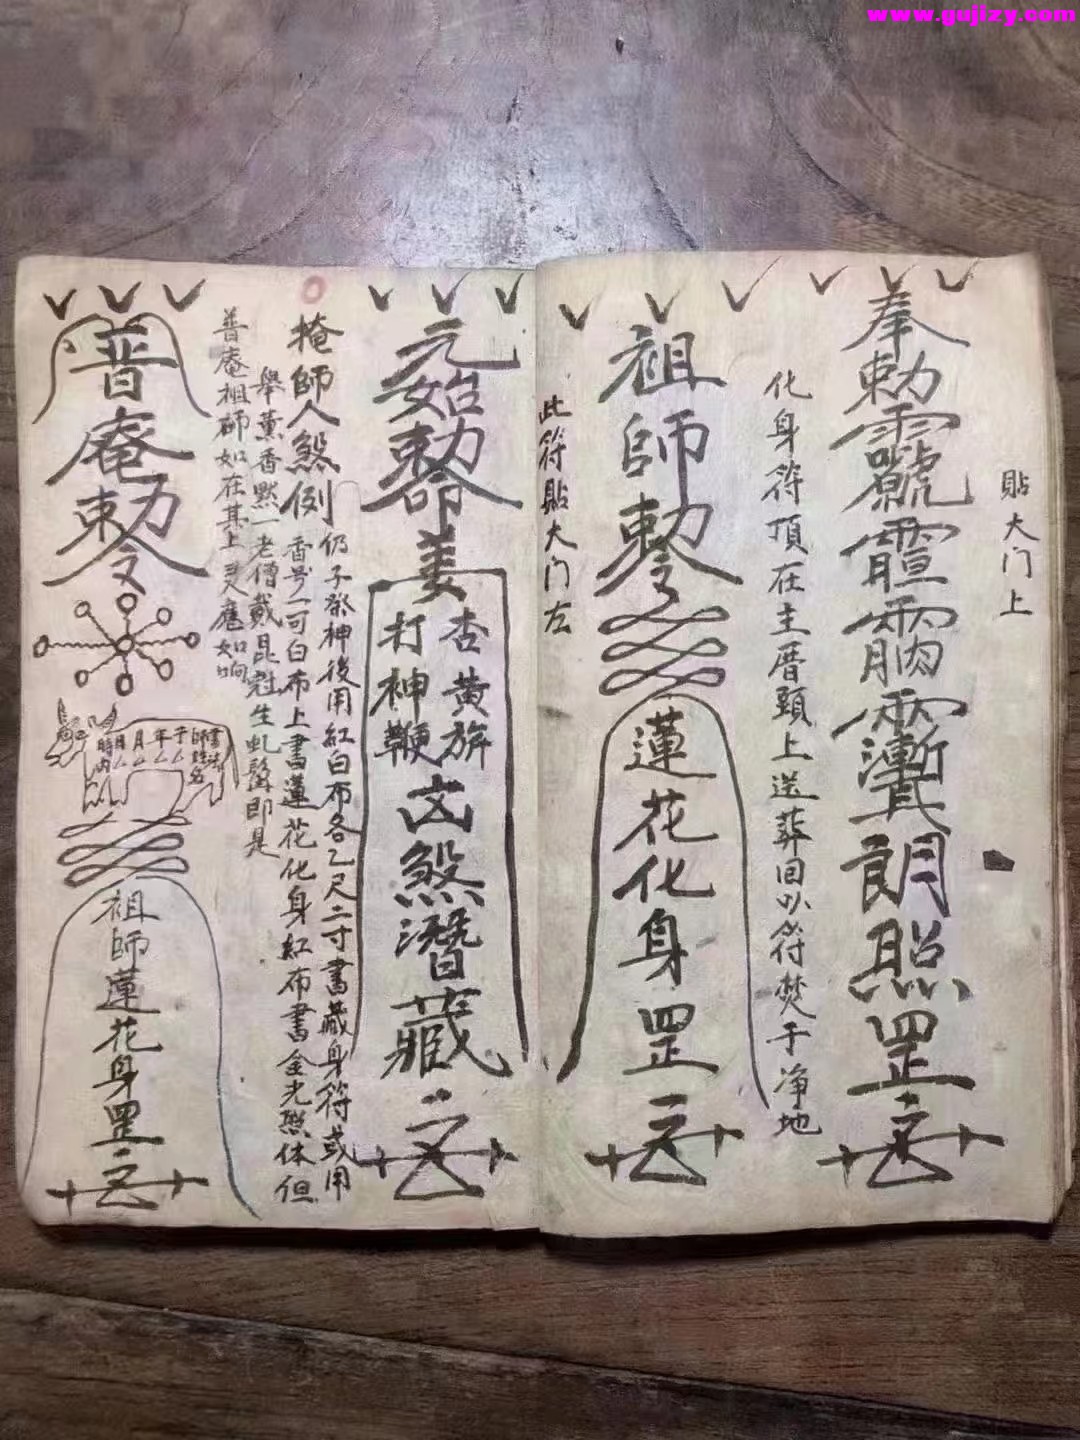 www.gujizy.com
貼大门上
奉勅
朗照罡
化身符頂在主厝頭上送葬回以符焚于净地
祖師勅令
蓮花化身罡
此符貼大门左
元始勅命姜
杏黄旂
打神鞭
凶煞潛藏
掩師人煞例
仍子癸神後用紅白布各乙尺二寸書藏身符或用
香号一可白布上書蓮花化身紅布書金光照体但
舉薰香黙一老僧戴昆
生虬髯即是
普庵祖師如在其上灵應如响
普庵勅令
祖師蓮花身罡